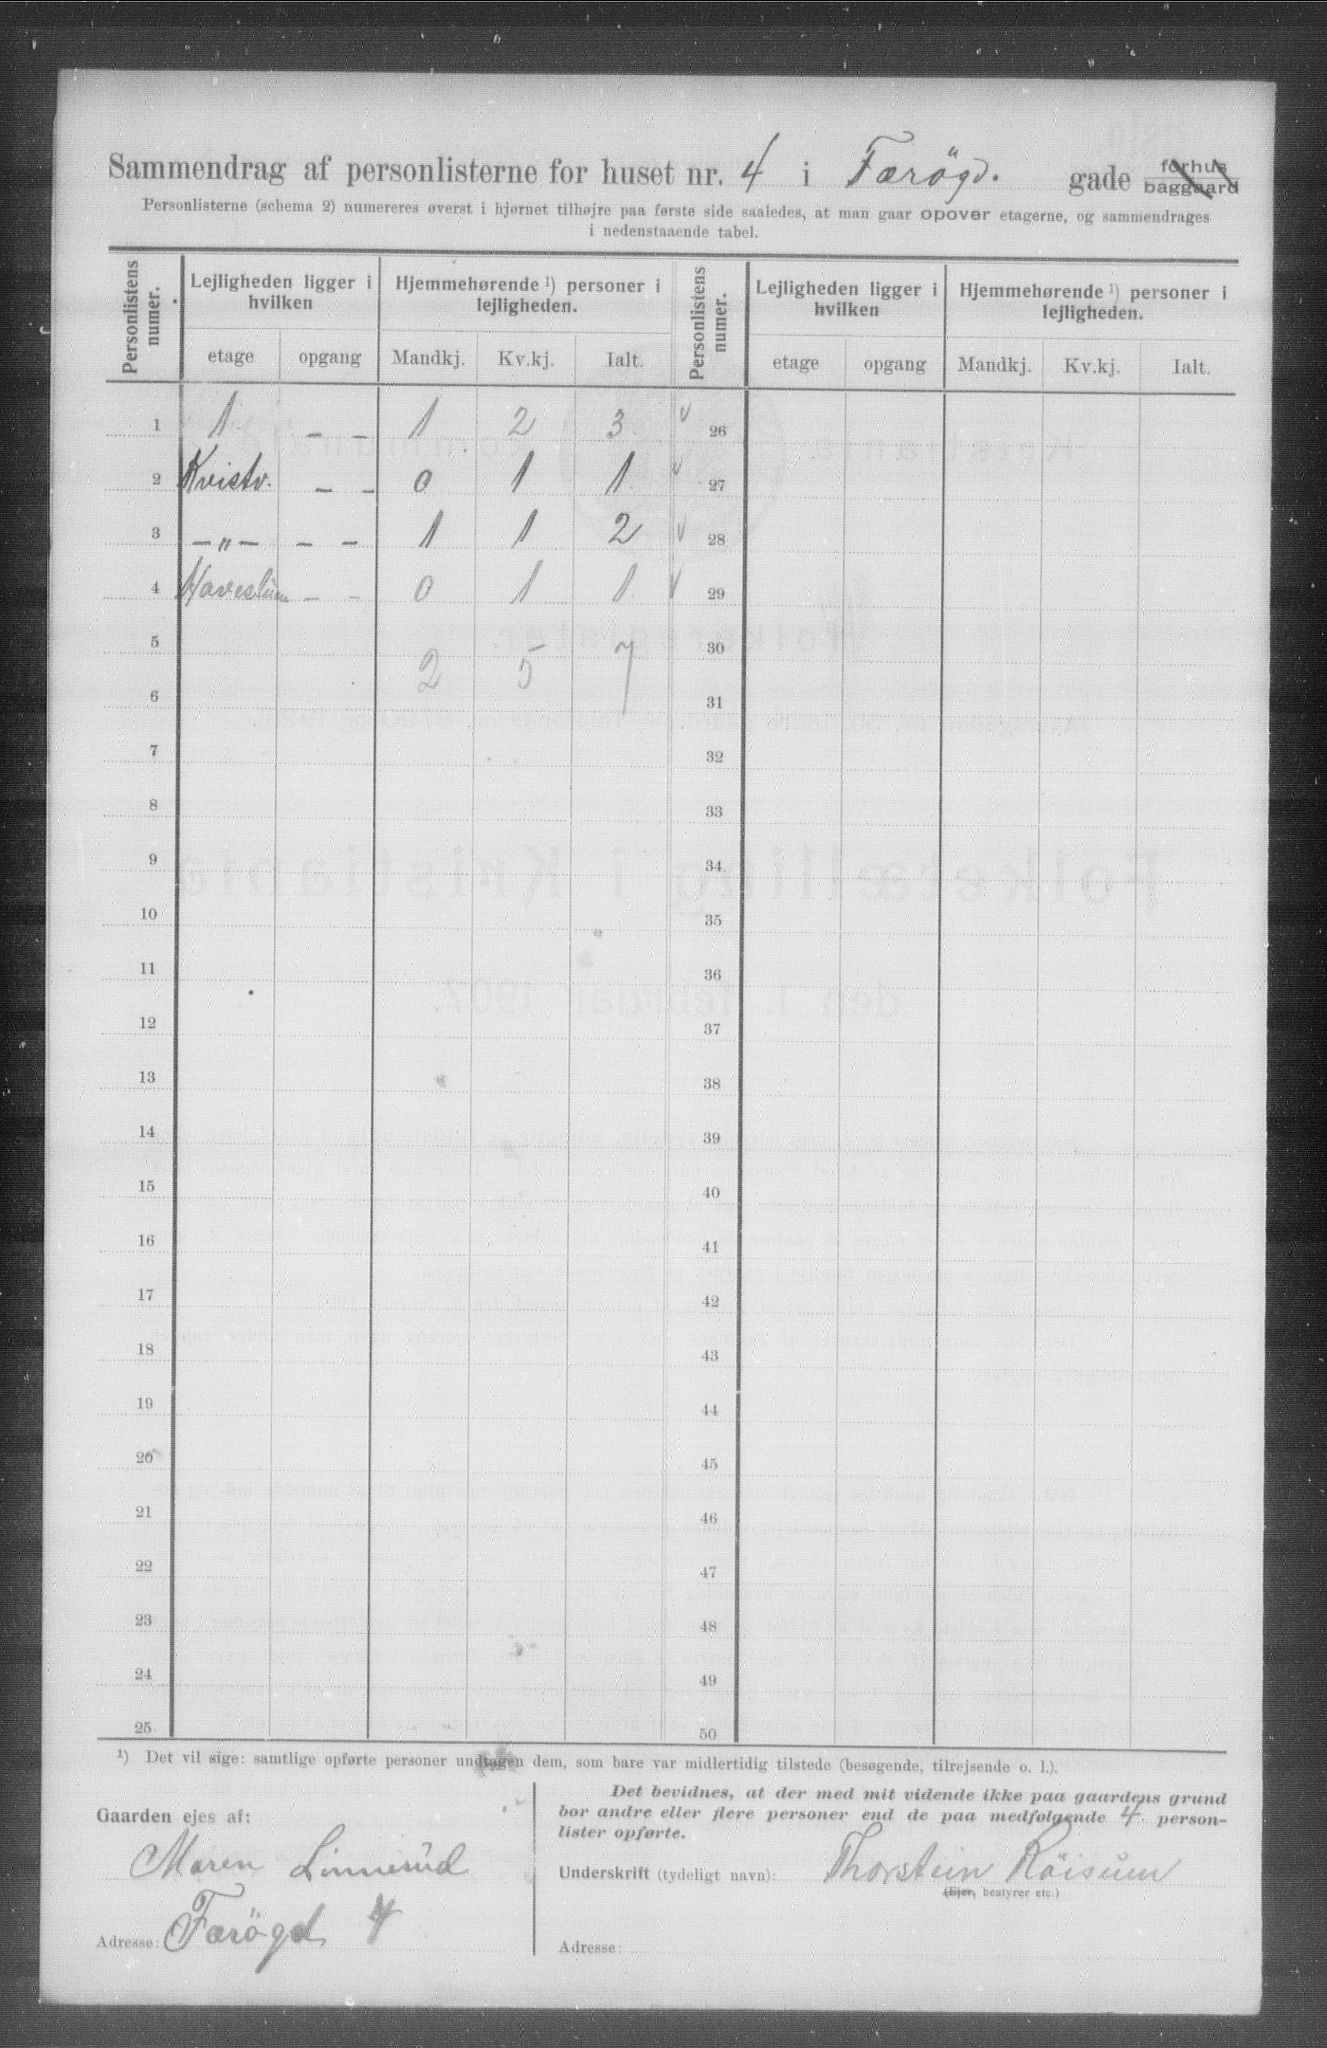 Sammendrag af personlisterne for huset nr. 4 i Færögd. gade forhus baggaard
Personlisterne (schema 2) numereres øverst i hjørnet tilhøjre paa første side saaledes, at man gaar opover etagerne, og sammendrages
i nedenstaaende tabel.
Personlistens numer. Lejligheden ligger i hvilken Hjemmehørende ¹) personer i lejligheden. Personlistens numer. Lejligheden ligger i hvilken Hjemmehørende ¹) personer i lejligheden.
etage opgang Mandkj. Kv.kj. Ialt. etage opgang Mandkj. Kv.kj. Ialt.
1 1 – – 1 2 3 √ 26
2 Kvistv. – – 0 1 1 √ 27
3 – „ – – – 1 1 2 √ 28
4 – – 0 1 1 √ 29
5 30
2 5 7
6 31
7 32
8 33
9 34
10 35
11 36
12 37
13 38
14 39
15 40
16 41
17 42
18 43
19 44
20 45
21 46
22 47
23 48
24 49
25 50
¹) Det vil sige: samtlige opførte personer undtagen dem, som bare var midlertidig tilstede (besøgende, tilrejsende o. l.).
Gaarden ejes af:
Maren Linnerud
Adresse: Færögd 4
Det bevidnes, at der med mit vidende ikke paa gaardens grund
bor andre eller flere personer end de paa medfølgende 4 person-
lister opførte.
Underskrift (tydeligt navn): Thorstein Röisum
(Ejer, bestyrer etc.)
Adresse: